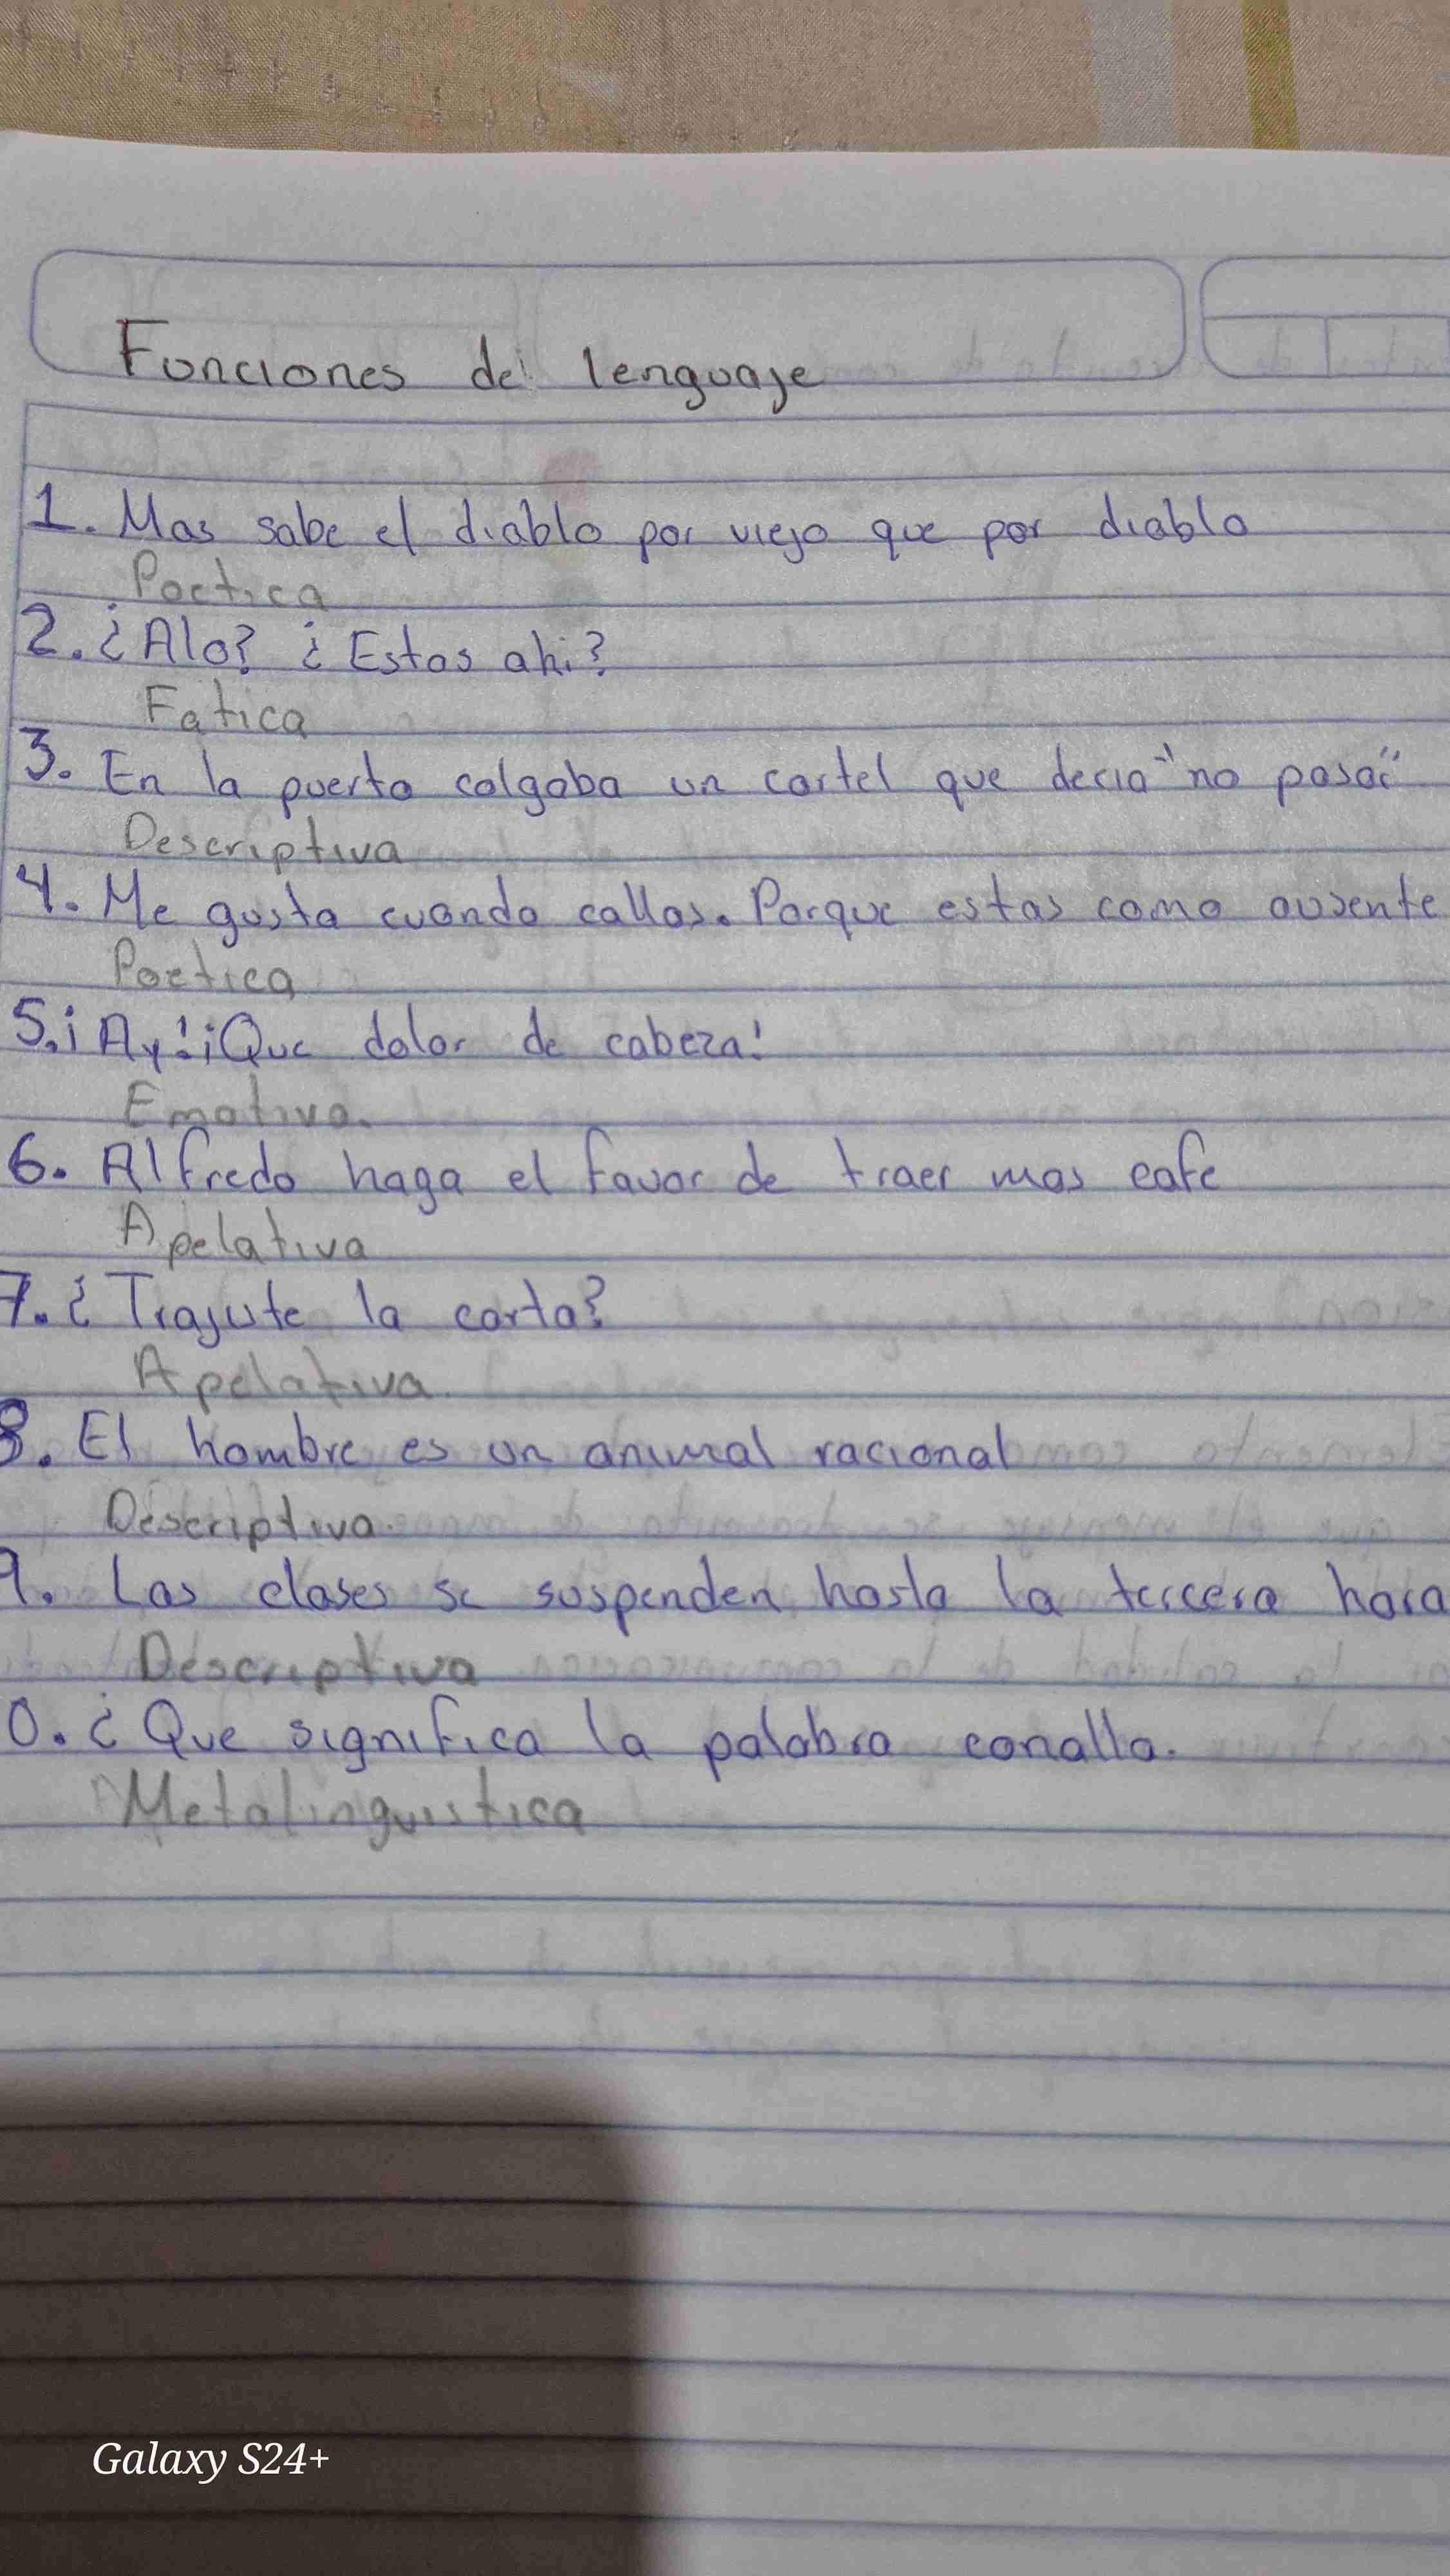 Funciones del lenguaje
1. Mas sabe el diablo por viejo que por diablo
Poetica
2. ¿Alo? ¿Estas ahi?
Fatica
3. En la puerta colgaba un cartel que decia "no pasar"
Descriptiva
4. Me gusta cuando callas. Porque estas como ausente
Poetica
5. ¡Ay! ¡Que dolor de cabeza!
Emotiva.
6. Alfredo haga el favor de traer mas cafe
Apelativa
7. ¿Trajiste la carta?
Apelativa.
8. El hombre es un animal racional
Descriptiva.
9. Las clases se suspenden hasta la tercera hora
Descriptiva
0. ¿Que significa la palabra canalla.
Metalinguistica
Galaxy S24+